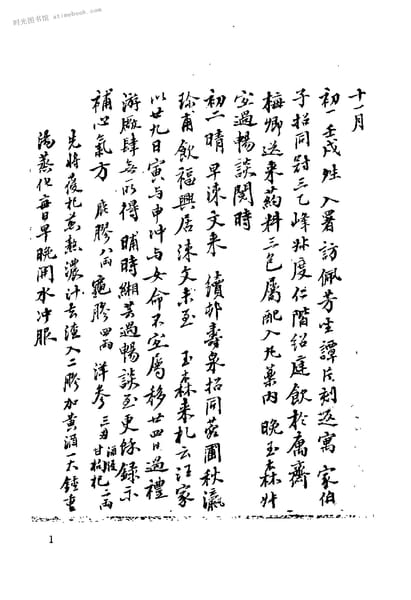 时光图书馆 atimebook.com
十一月
初一壬戌 入署訪佩芳坐譚片刻返寓 家伯
子招同 三乙峰 度仁階紹庭飲於寓齋
梅卿送来葯料三色屬配入丸藥內 晚玉森
室過暢談閱時
初二晴 早漱文来 續邨壽泉招同若圃秋瀛
珍甫飲福興居漱文未至 玉森来札云汪家
以廿九日寅与申冲与女命不宜屬移廿四日過禮
游廠肆無所得 晡時緗芸過暢談至更餘錄示
補心氣方 鹿膠八兩 龜膠四兩 洋參三兩 枸杞一兩
先將 杞煎熬濃汁去渣入二膠加黃酒一大鍾重
湯蒸化每日早晚開水冲服
1